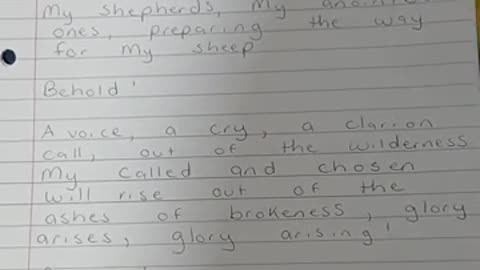 My shepherds, My
ones, preparing the way
for My sheep
Behold '
A voice, a cry, a clarion
call, out of the wilderness
My called and chosen
will rise out of the
ashes of brokeness, glory
arises, glory arising '